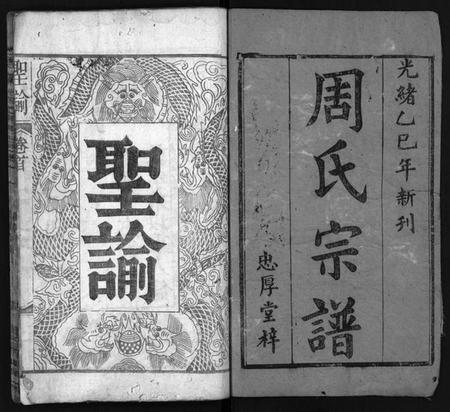 光緒乙巳年新刊
周氏宗譜
忠厚堂梓
聖諭
聖諭 卷首